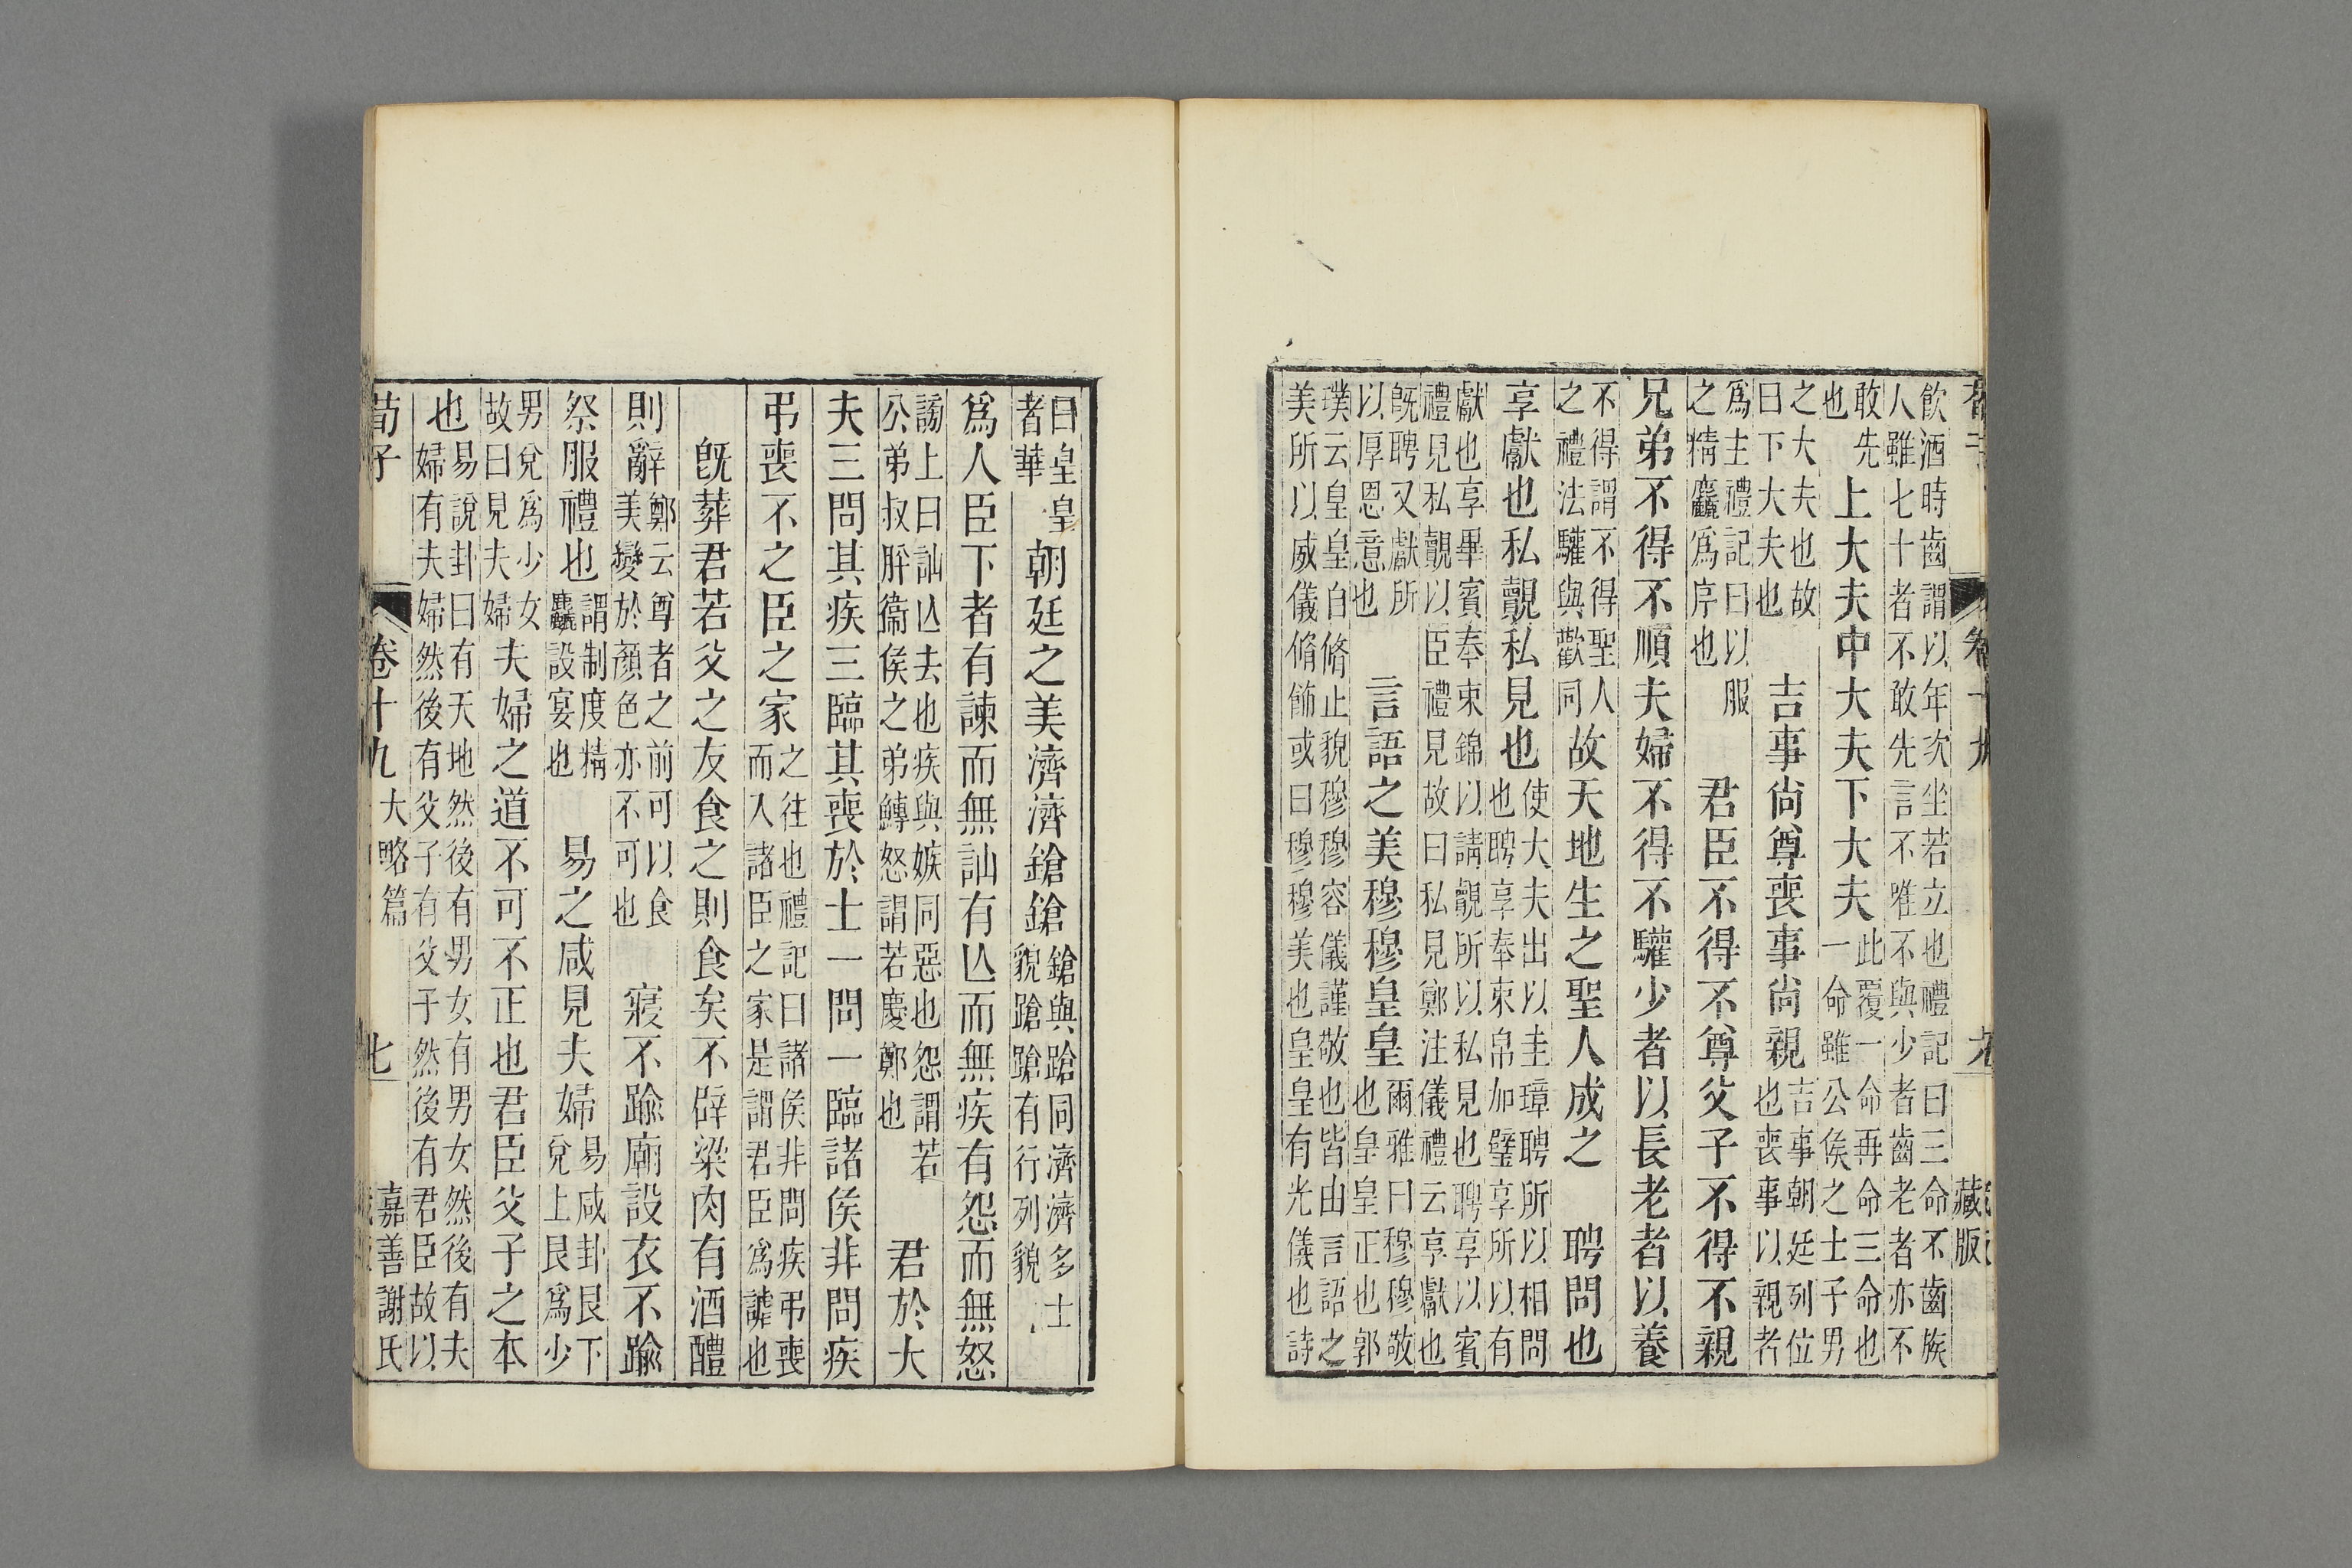 藏版
飲酒時齒謂以年次坐若立也禮記曰三命不齒族
人雖七十者不敢先言不唯不與少者齒老者亦不
敢先
也
上大夫中大夫下大夫
此覆一命再命三命也
一命雖公侯之士子男
之大夫也故
曰下大夫也
吉事尙尊喪事尙親
吉事朝廷列位
也喪事以親者
爲主禮記曰以服
之精麤爲序也
君臣不得不尊父子不得不親
兄弟不得不順夫婦不得不驩少者以長老者以養
不得謂不得聖人
之禮法驩與歡同
故天地生之聖人成之 聘問也
享獻也私覿私見也
使大夫出以圭璋聘所以相問
也聘享奉束帛加璧享所以有
獻也享畢賓奉束錦以請覿所以私見也聘享以賓
禮見私覿以臣禮見故曰私見鄭注儀禮云享獻也
旣聘又獻所
以厚恩意也
言語之美穆穆皇皇
爾雅曰穆穆敬
也皇皇正也郭
璞云皇皇自脩止貌穆穆容儀謹敬也皆由言語之
美所以威儀脩飾或曰穆穆美也皇皇有光儀也詩
曰皇皇
者華
朝廷之美濟濟鎗鎗
鎗與蹌同濟濟多士
貌蹌蹌有行列貌
爲人臣下者有諫而無訕有亾而無疾有怨而無怒
謗上曰訕亾去也疾與嫉同惡也怨謂若
公弟叔肸衞侯之弟鱄怒謂若慶鄭也
君於大
夫三問其疾三臨其喪於士一問一臨諸侯非問疾
弔喪不之臣之家
之往也禮記曰諸侯非問疾弔喪
而入諸臣之家是謂君臣爲謔也
旣葬君若父之友食之則食矣不辟梁肉有酒醴
則辭
鄭云尊者之前可以食
美變於顏色亦不可也
寢不踰廟設衣不踰
祭服禮也
謂制度精
麤設宴也
易之咸見夫婦
易咸卦艮下
兌上艮爲少
男兌爲少女
故曰見夫婦
夫婦之道不可不正也君臣父子之本
也
易說卦曰有天地然後有男女有男女然後有夫
婦有夫婦然後有父子有父子然後有君臣故以
荀子 卷十九 大略篇 七 嘉善謝氏